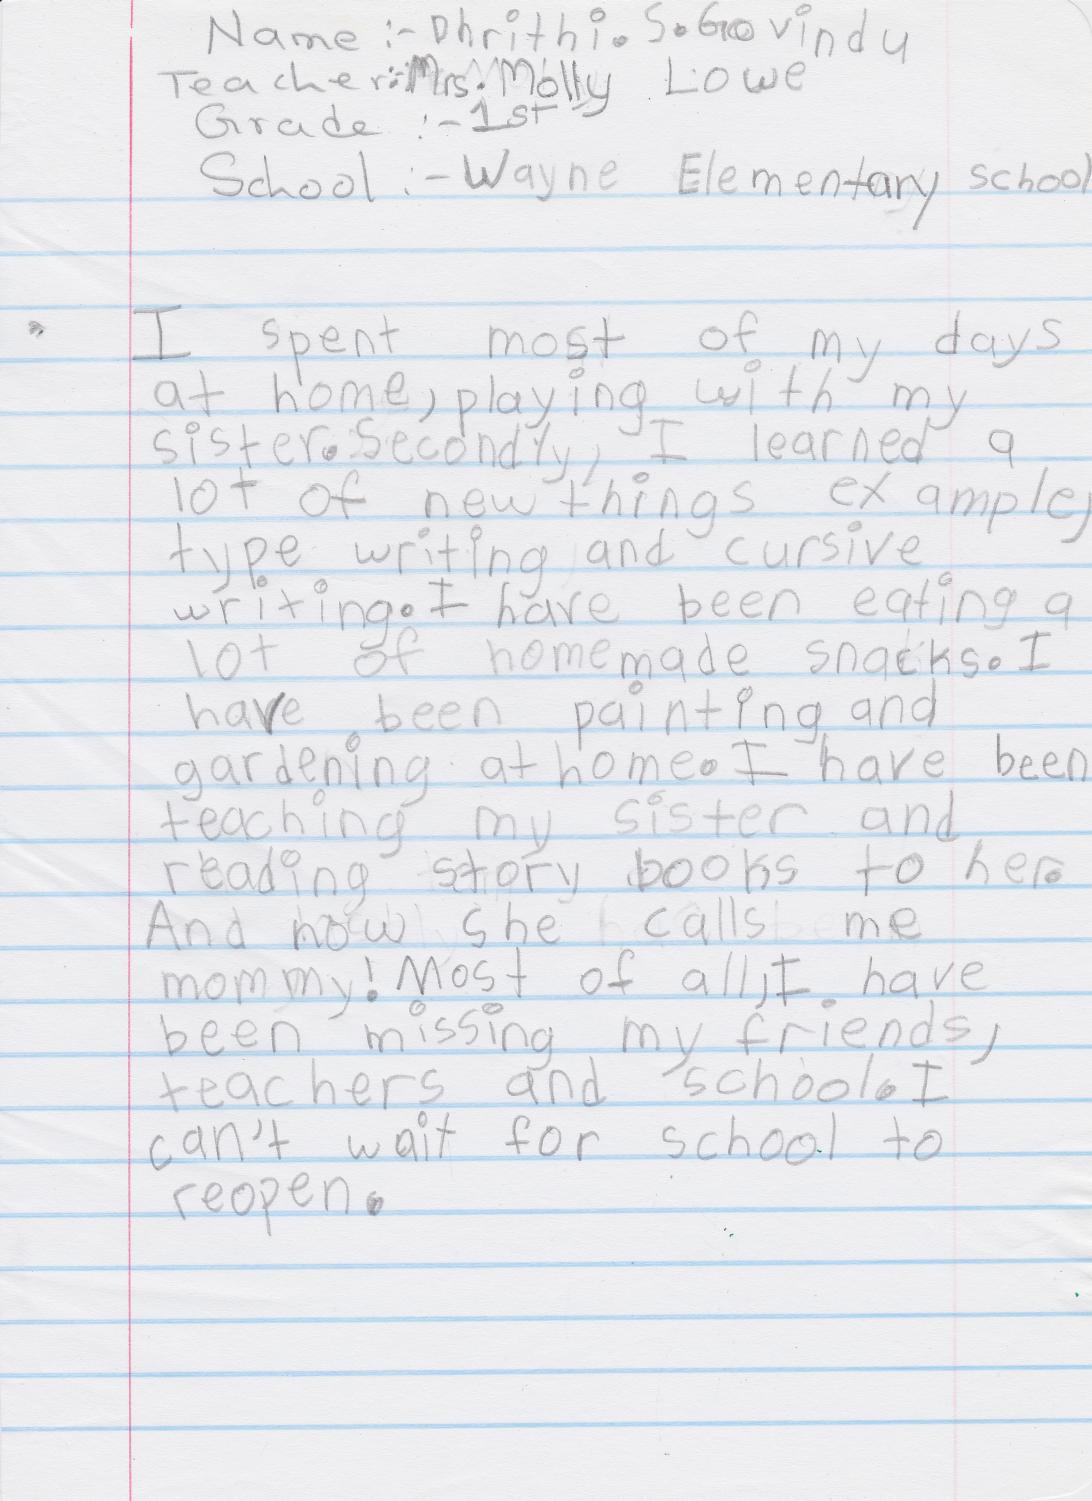 Name :- Dhrithi. S. Govindu
Teacher:- Mrs. Molly Lowe
Grade :- 1st
School :- Wayne Elementary school
I spent most of my days
at home, playing with my
sister. Secondly, I learned a
lot of new things example,
type writing and cursive
writing. I have been eating a
lot of homemade snacks. I
have been painting and
gardening at home. I have been
teaching my sister and
reading story books to her.
And now she calls me
mommy! Most of all, I have
been missing my friends,
teachers and school. I
can't wait for school to
reopen.